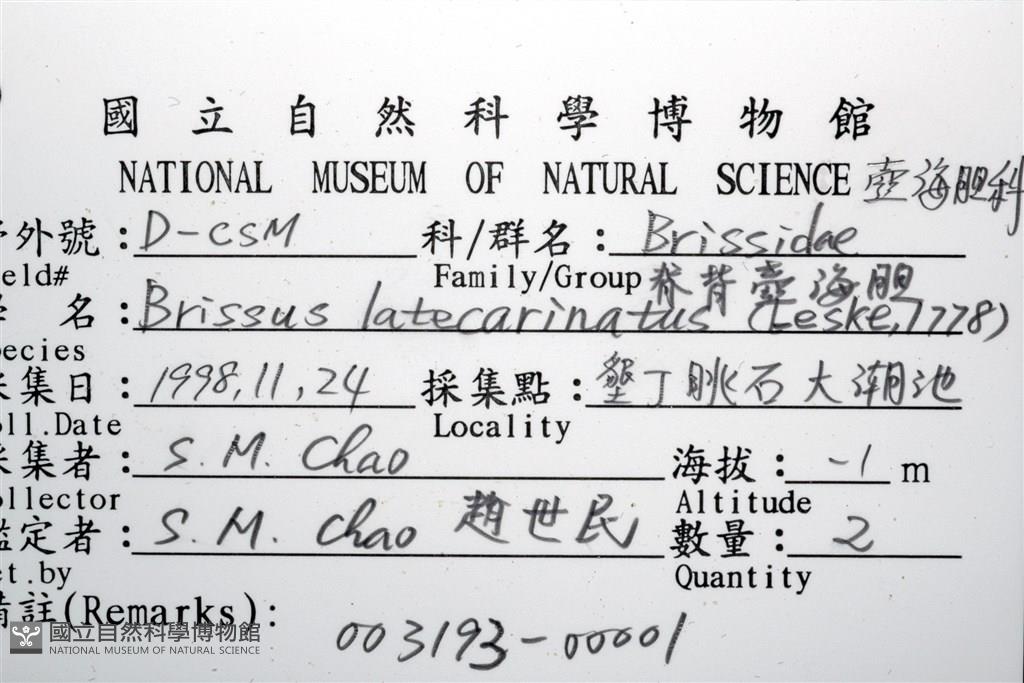 國立自然科學博物館
NATIONAL MUSEUM OF NATURAL SCIENCE 壺海胆科
外號：D-CSM 科/群名：Brissidae
eld# Family/Group 脊背壺海胆
名：Brissus latecarinatus (Leske, 1778)
ecies
采集日：1998,11,24 採集點：墾丁眺石大潮池
oll.Date Locality
采集者：S. M. Chao 海拔：-1 m
ollector Altitude
鑑定者：S. M. Chao 趙世民 數量：2
et.by Quantity
備註(Remarks)：
003193-00001
國立自然科學博物館
NATIONAL MUSEUM OF NATURAL SCIENCE